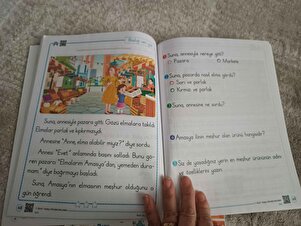 Suna, annesiyle pazara gitti. Gözü elmalara takıldı.
Elmalar parlak ve kıpkırmızıydı.
Annesine "Anne, elma alabilir miyiz?" diye sordu.
Annesi "Evet." anlamında başını salladı. Bunu gö-
ren pazarcı "Elmaların Amasya'dan, yemeden dura-
mam." diye bağırmaya başladı.
Suna, Amasya'nın elmasının meşhur olduğunu o
gün öğrendi.
Suna, annesiyle nereye gitti?
Pazara
Markete
Suna, pazarda nasıl elma gördü?
Sarı ve parlak
Kırmızı ve parlak
Suna, annesine ne sordu?
Amasya ilinin meşhur olan ürünü hangisidir?
Siz de yaşadığınız yerin en meşhur ürününün adını
ve özelliklerini yazın.